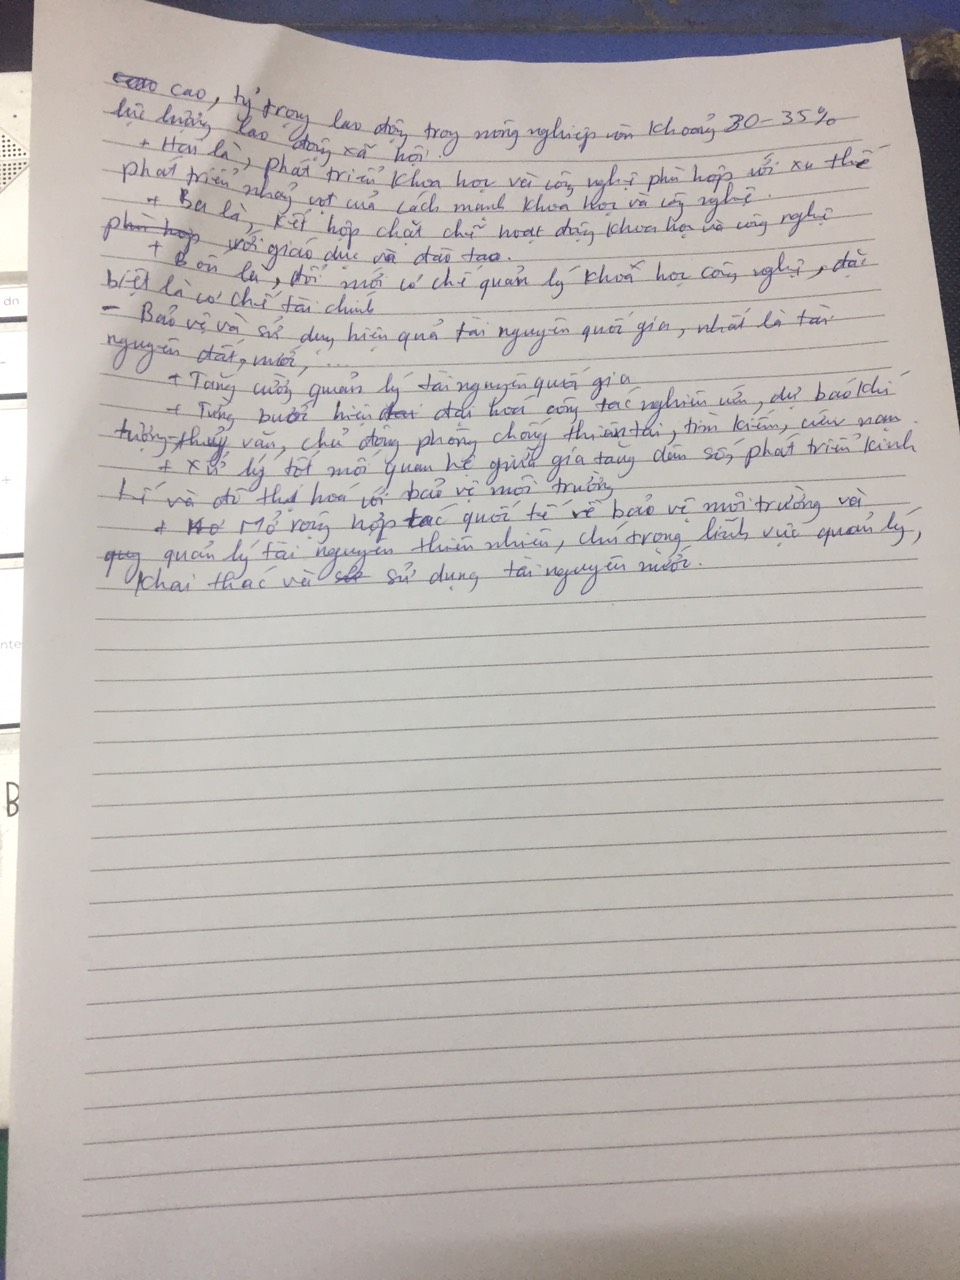 cao, tỷ trọng lao động trong nông nghiệp còn khoảng 30-35%
lực lượng lao động xã hội.
+ Hai là, phát triển khoa học và công nghệ phù hợp với xu thế
phát triển nhảy vọt của cách mạnh khoa học và công nghệ.
+ Ba là, kết hợp chặt chẽ hoạt động khoa học và công nghệ
phù hợp với giáo dục và đào tạo.
+ Bốn là, đổi mới cơ chế quản lý khoa học công nghệ, đặc
biệt là cơ chế tài chính
- Bảo vệ và sử dụng hiệu quả tài nguyên quốc gia, nhất là tài
nguyên đất, nước, ...
+ Tăng cường quản lý tài nguyên quốc gia
+ Từng bước hiện đại hoá công tác nghiên cứu, dự báo khí
tượng-thuỷ văn, chủ động phòng chống thiên tai, tìm kiếm, cứu nạn
+ Xử lý tốt mối quan hệ giữa gia tăng dân số, phát triển kinh
tế và đô thị hoá với bảo vệ môi trường
+ Mở rộng hợp tác quốc tế về bảo vệ môi trường và
quản lý tài nguyên thiên nhiên, chú trọng lĩnh vực quản lý,
khai thác và sử dụng tài nguyên nước.
dn
B